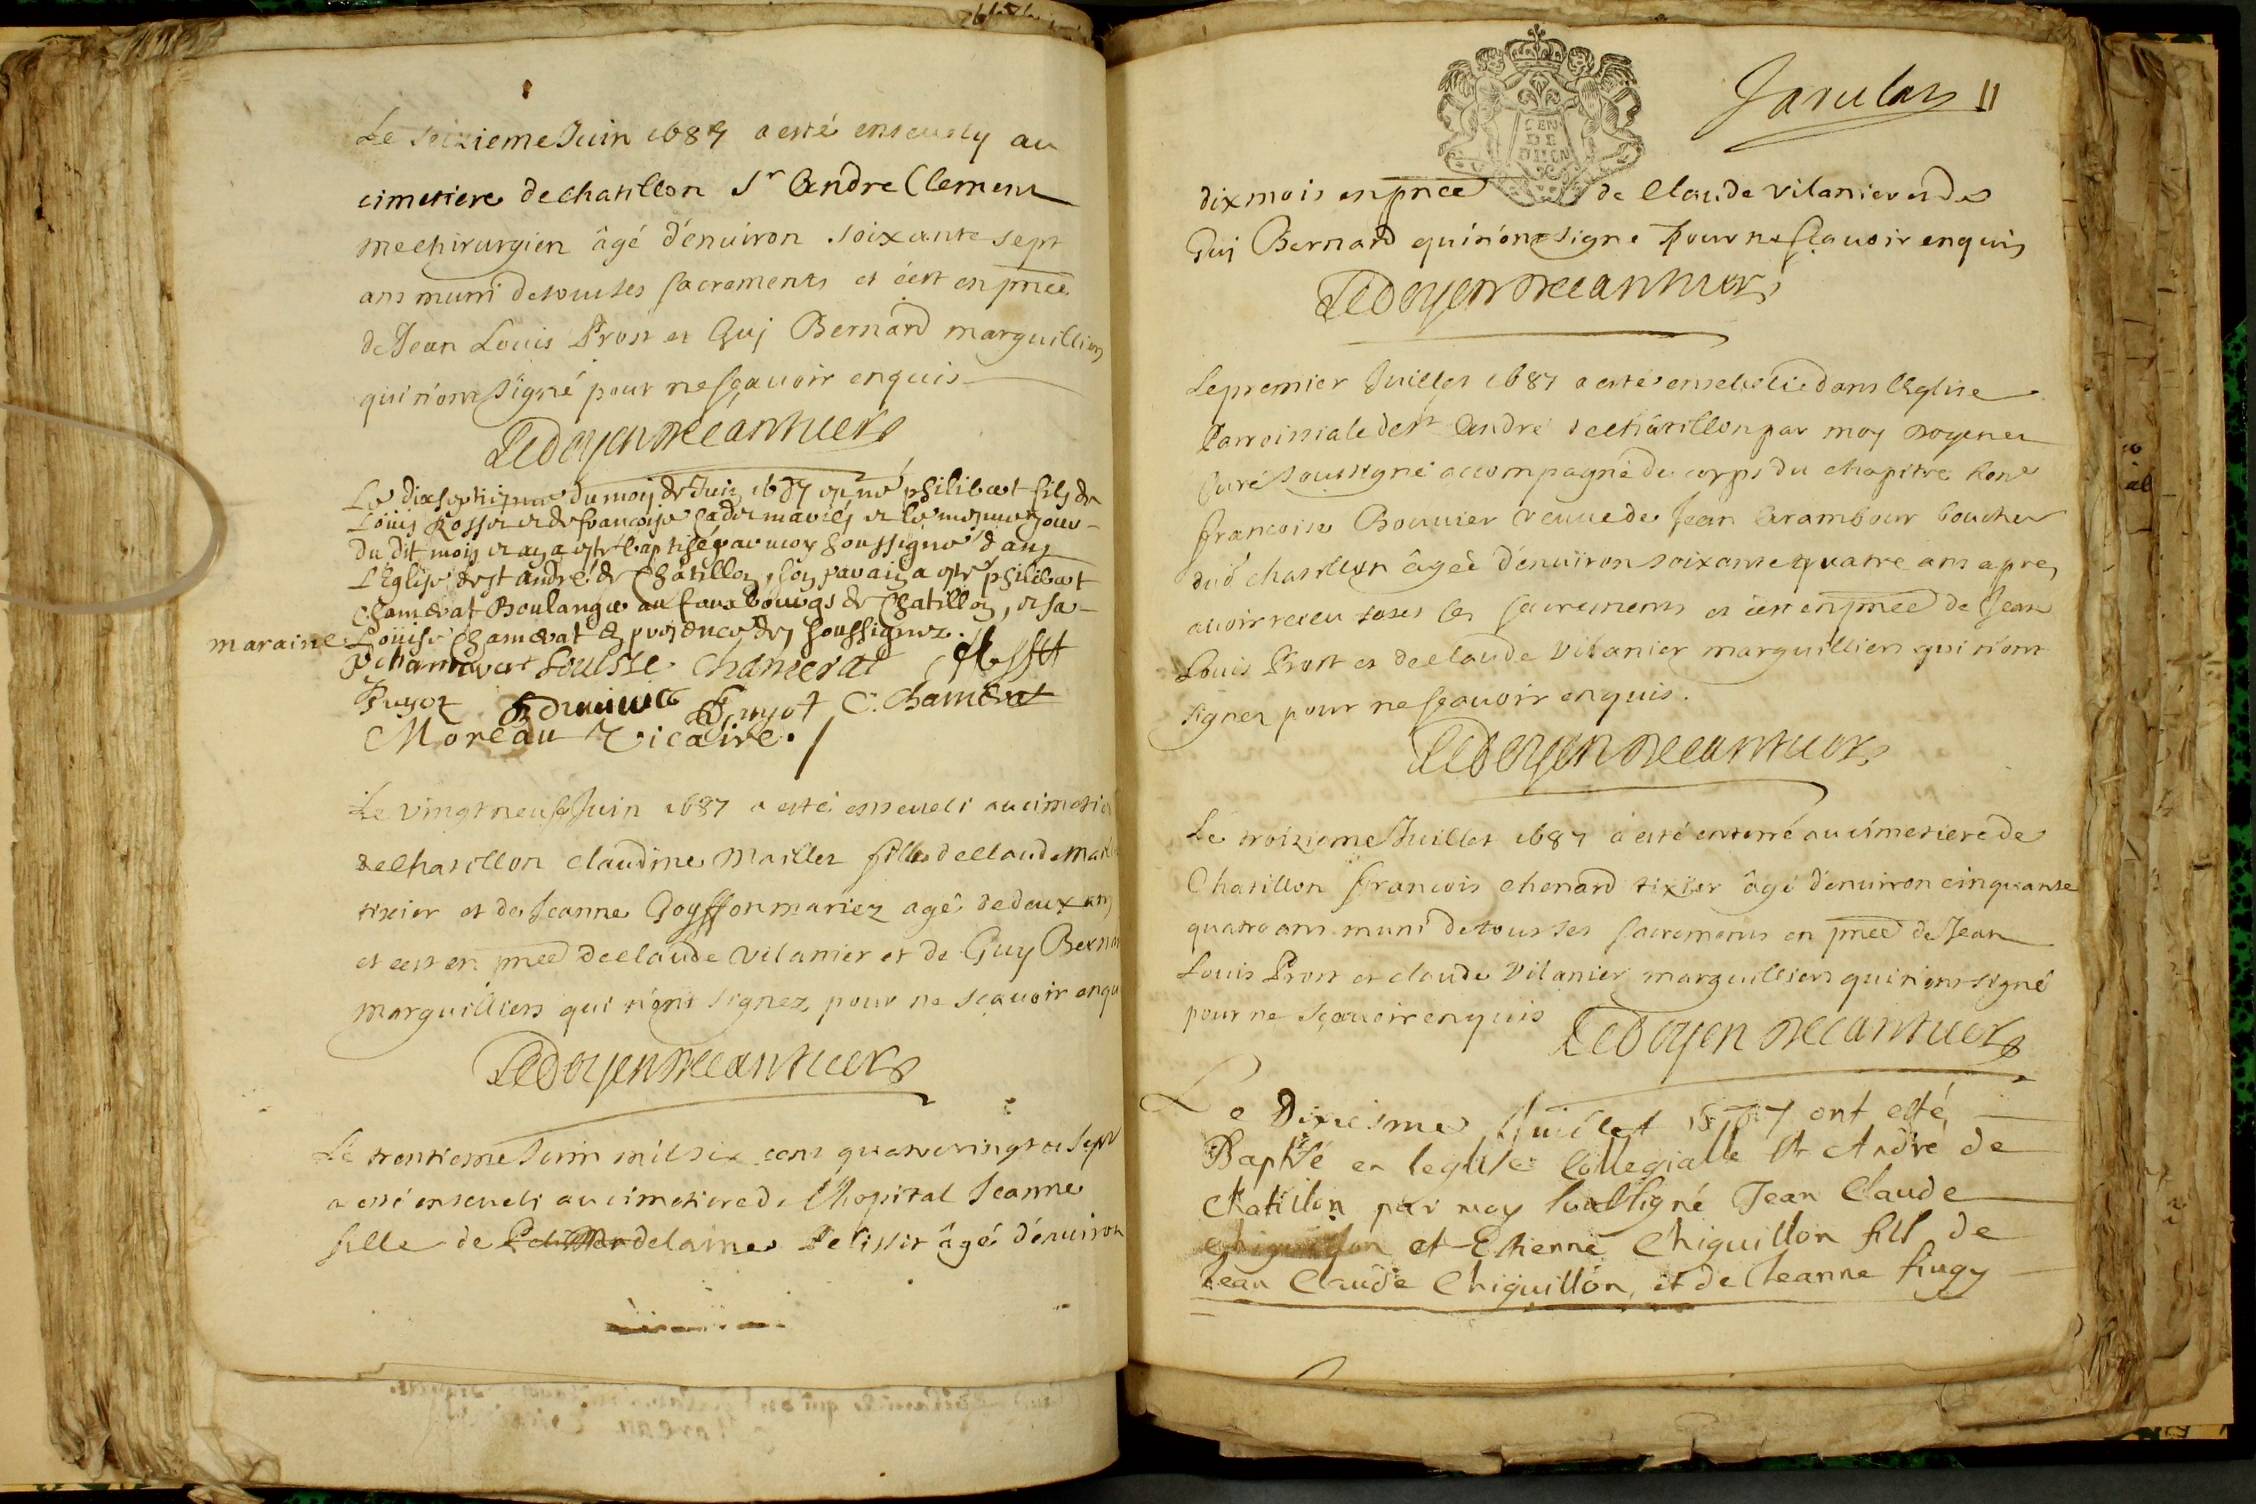 Le seizieme Juin 1687 a esté ensevely au
cimetiere de chatillon Sr Andre Clement
me chirurgien âgé d'environ soixante sept
ans muni de tous ses sacrements et c'est en pnce
de Jean Louis Prost et Guj Bernard marguilliers
qui n'ont signé pour ne sçavoir enquis
Ledoyen
Le dixseptiesme du mois de Juin 1687 est né philibert fils de
Louis Rosset et de francoise mariés et le mesme jour
du dit mois et an a esté baptisé par moy soussigné dans
L'Eglise de st andré de Chatillon, son parain a esté philibert
Chamerat Boulanger au faux bourgs de Chatillon, et sa
maraine Loüise Chamerat en presence des soussignez.
P chamerat Louisse Chamerat
Guyot C. Chamerat
Moreau Vicaire.
Le vingt neuf Juin 1687 a esté enseveli au cimetie
de Chatillon claudine Maillet fille de Claude Mail
tixier et de Jeanne Goyffon mariez agé de deux ans
et c'est en pnce de claude vilanier et de Guy Berna
marguilliers qui n'ont signez pour ne sçavoir enqu
Ledoyen
Le trentieme Juin mil six cens quatrevingt et sept
a esté enseveli au cimetiere de l'hopital Jeanne
fille de delaine Pelissir âgé d'environ
Janulas 11
GEN
DE
DIION
dix mois en pnce de Claude vilanier et de
Guj Bernard qui n'ont signé pour ne sçavoir enquis
Ledoyen
Le premier Juillet 1687 a estée ensevelie dans l'Eglise
Parroissiale de st Andre de châtillon par moy doyen et
Curé soussigné accompagné du corps du chapitre hone
francoise Bouvier veuve de Jean Arambour boucher
dud chatillon âgée d'environ soixante quatre ans apres
avoir receu tous les sacrements et c'est en pnce de Jean
Louis Prost et de claude vilanier marguilliers qui n'ont
signez pour ne sçavoir enquis.
Ledoyen
Le troizieme Juillet 1687 a esté enterré au cimetiere de
Chatillon francois chenard tixier âgé d'environ cinquante
quatre ans muni de tous ses sacrements en pnce de Jean
Louis Prost et claude vilanier marguilliers qui n'ont signé
pour ne sçavoir enquis Ledoyen
Le Dixiesme Juillet 1687 ont esté
Baptisé en leglise Collegialle St André de
chatillon par moy soussigné Jean Claude
Chiguillon et Etienne Chiguillon fils de
Jean Claude Chiguillon, et de Jeanne fugy